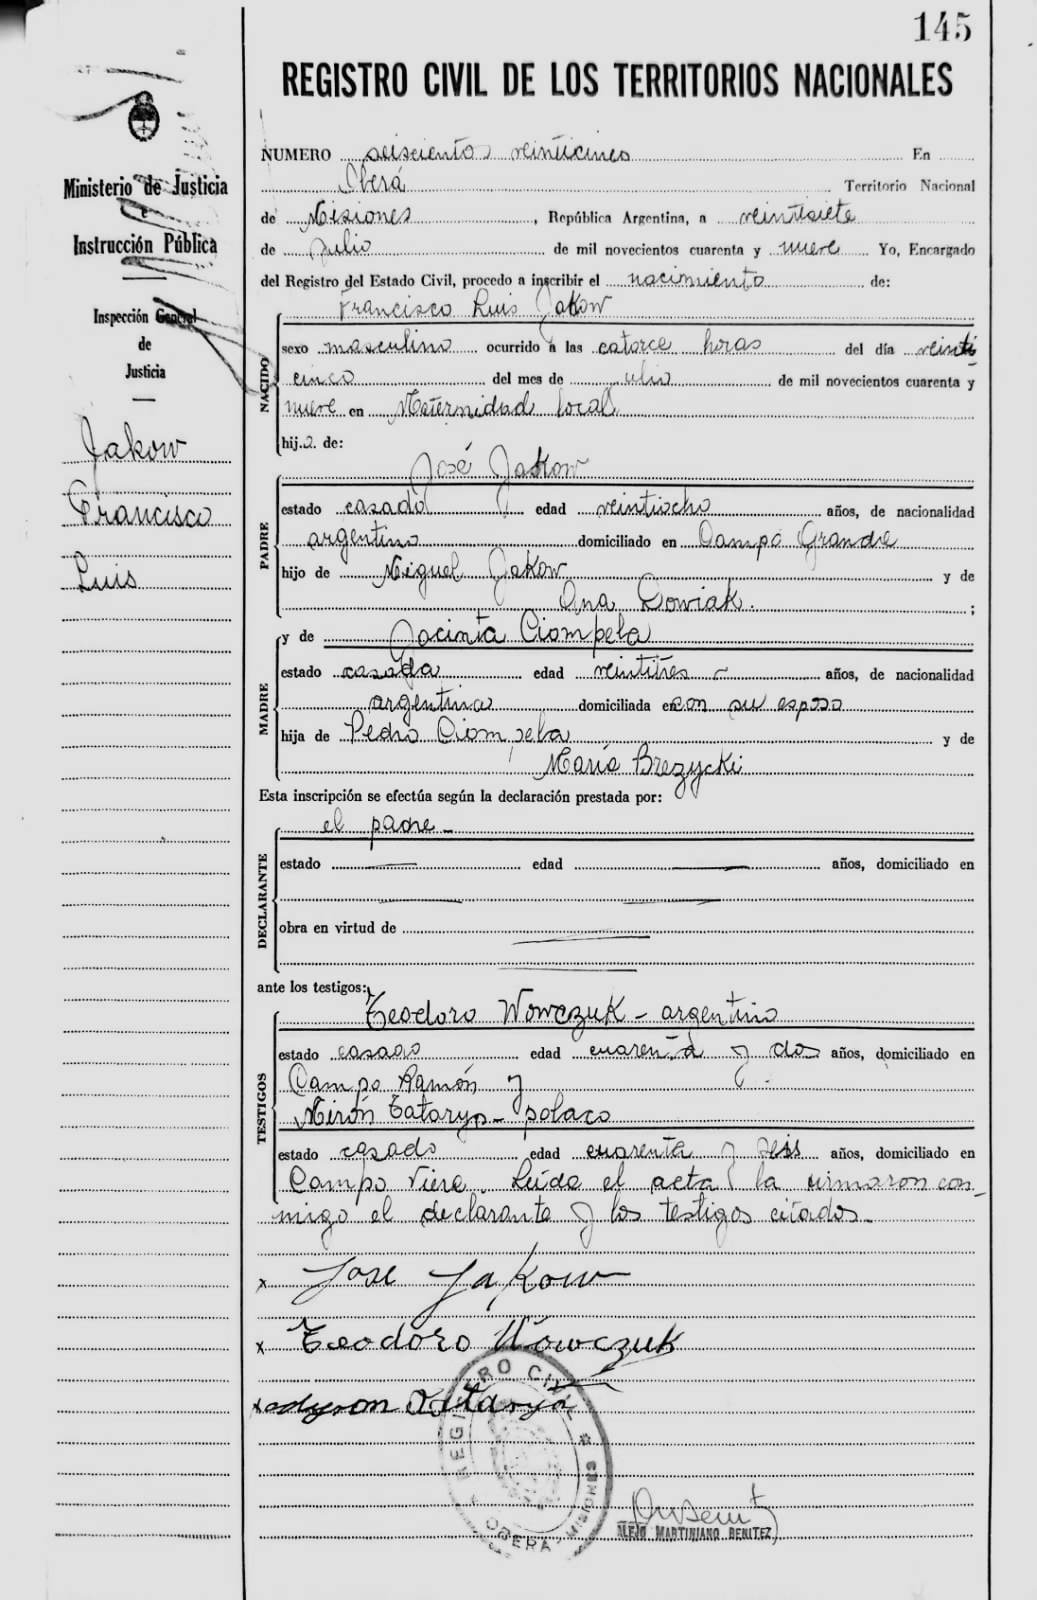 145
REGISTRO CIVIL DE LOS TERRITORIOS NACIONALES
Ministerio de Justicia
e
Instrucción Pública
Inspección General
de
Justicia
Jakow
Francisco
Luis
NUMERO seiscientos veinticinco En
Oberá Territorio Nacional
de Misiones, República Argentina, a veintisiete
de julio de mil novecientos cuarenta y nueve Yo, Encargado
del Registro del Estado Civil, procedo a inscribir el nacimiento de:
Francisco Luis Jakow
NACIDO
sexo masculino ocurrido a las catorce horas del día veinti
cinco del mes de julio de mil novecientos cuarenta y
nueve en Maternidad local
hij.o de:
José Jakow
PADRE
estado casado edad veintiocho años, de nacionalidad
argentino domiciliado en Campo Grande
hijo de Miguel Jakow y de
Ana Dowiak. ;
y de Jacinta Ciompela
MADRE
estado casada edad veintitres - años, de nacionalidad
argentina domiciliada en con su esposo
hija de Pedro Ciompela y de
María Brezycki
Esta inscripción se efectúa según la declaración prestada por:
el padre -
DECLARANTE
estado edad años, domiciliado en
obra en virtud de
ante los testigos:
Teodoro Wowczuk - argentino
TESTIGOS
estado casado edad cuarenta y dos años, domiciliado en
Campo Ramón y
Mirón Tataryn - polaco
estado casado edad cuarenta y seis años, domiciliado en
Campo Viera. Leída el acta la firmaron con-
migo el declarante y los testigos citados -
x José Jakow
x Teodoro Wowczuk
x Tataryn
REGISTRO CIVIL * OBERA, MISIONES *
ALEJO MARTINIANO BENITEZ